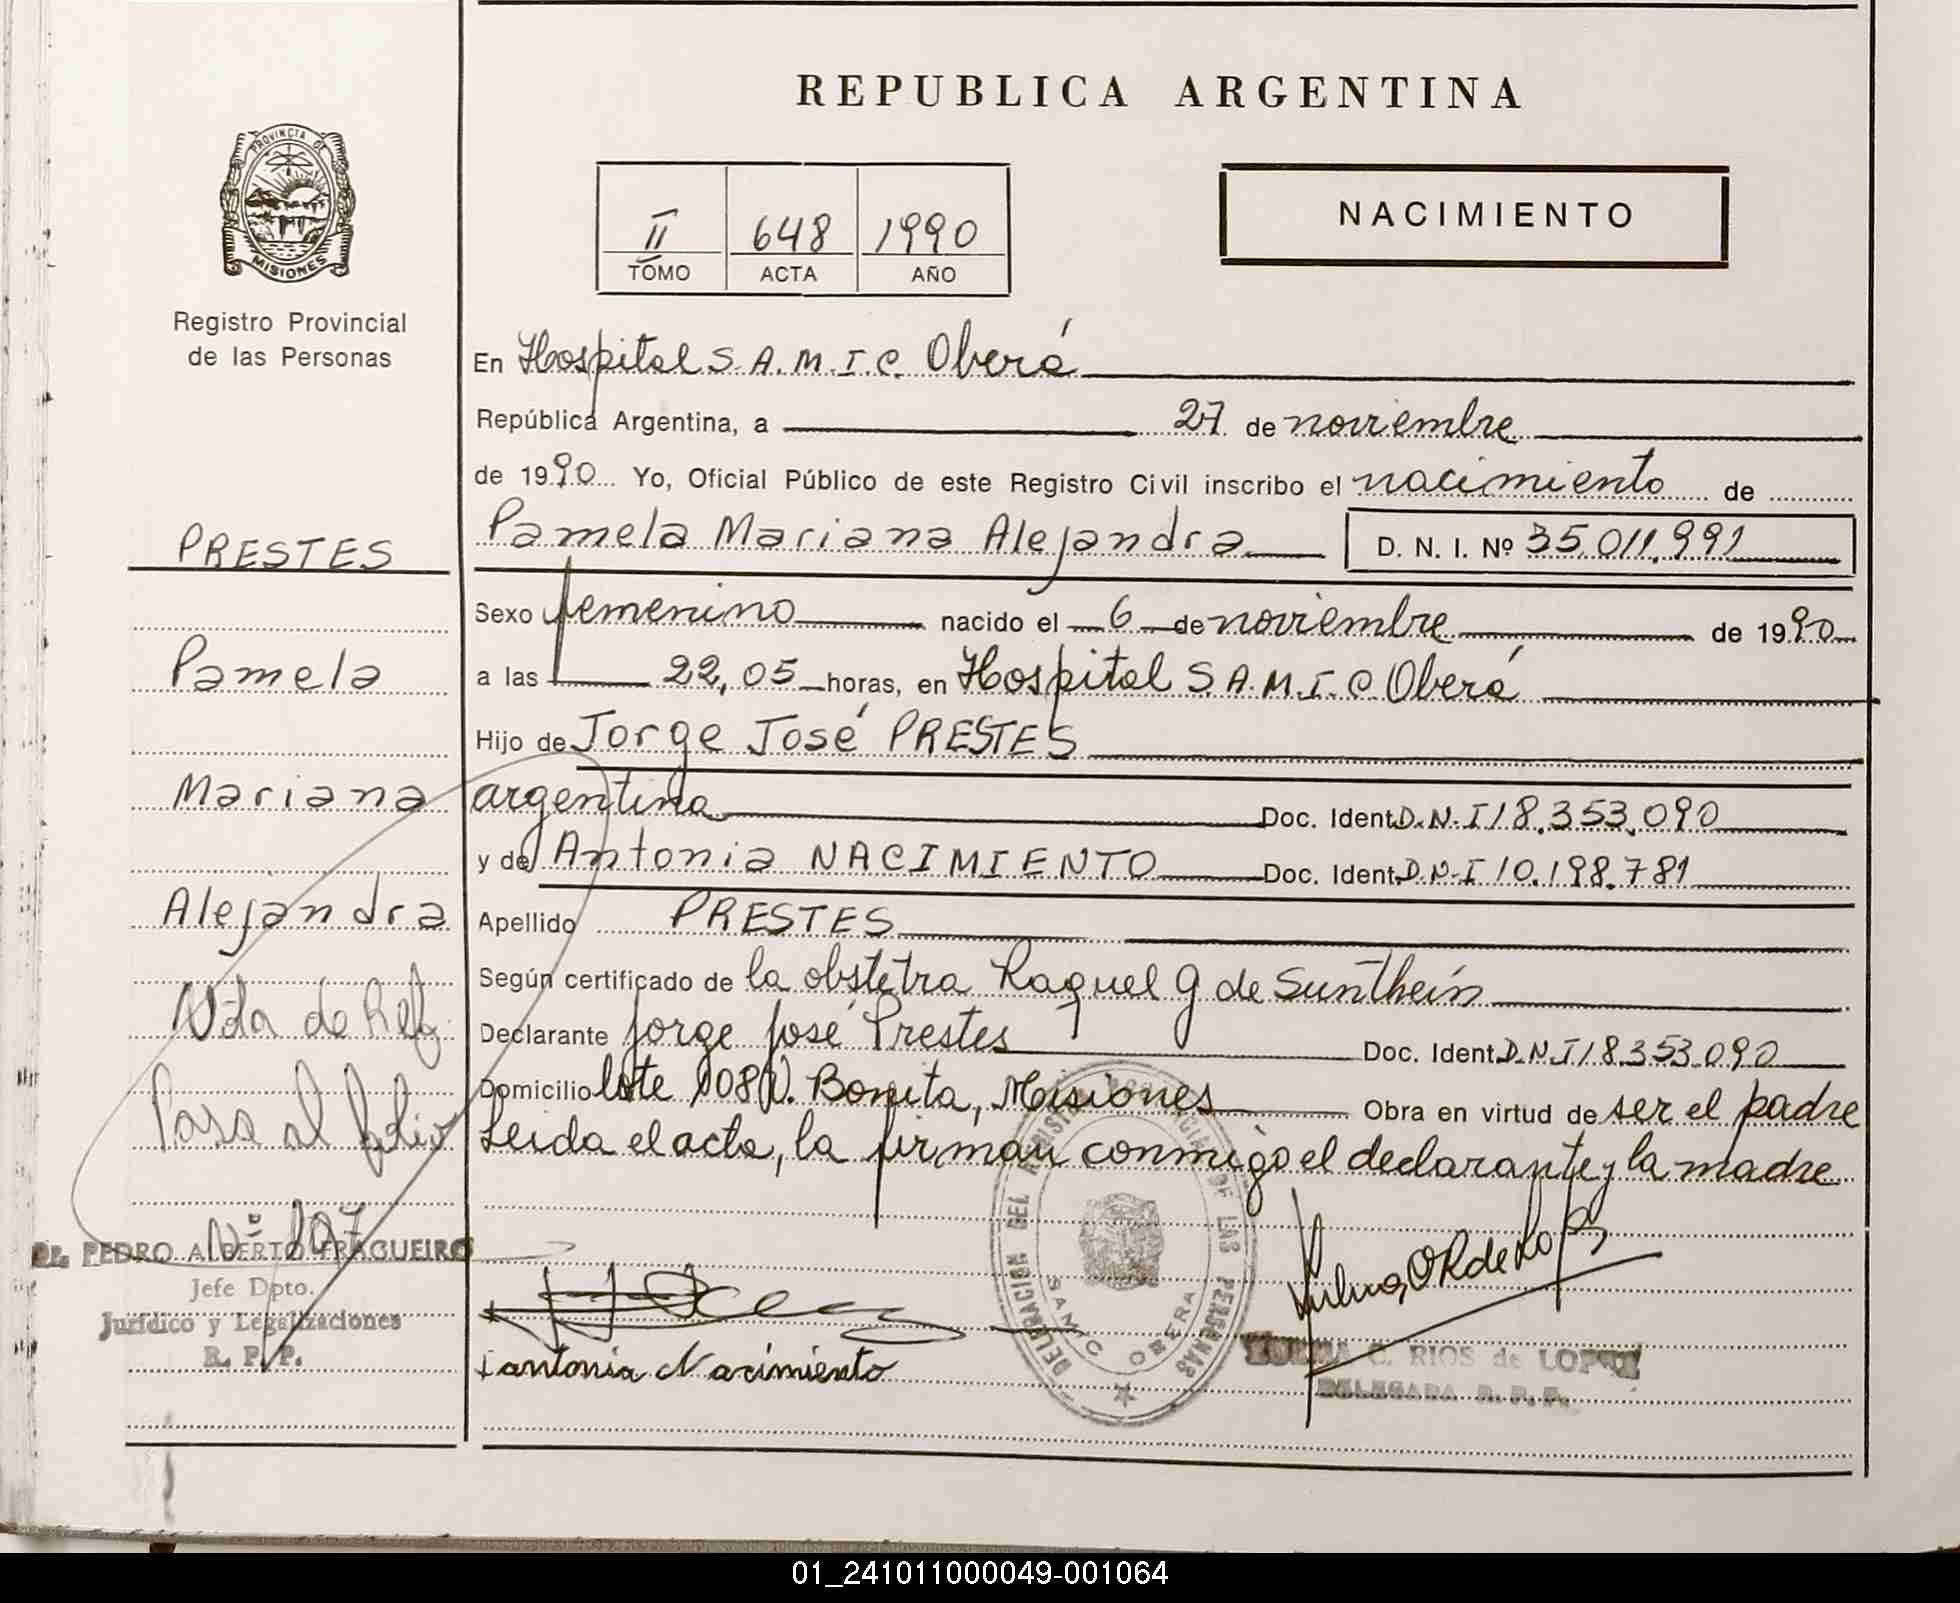 REPUBLICA ARGENTINA
PROVINCIA DE
MISIONES
Registro Provincial
de las Personas
II 648 1990
TOMO ACTA AÑO
NACIMIENTO
En Hospital S.A.M.I.C. Oberá
República Argentina, a 27 de noviembre
de 1990 Yo, Oficial Público de este Registro Civil inscribo el nacimiento de
Pamela Mariana Alejandra D. N. I. Nº 35.011.991
Sexo femenino nacido el 6 de noviembre de 1990
a las 22,05 horas, en Hospital S.A.M.I.C Oberá
Hijo de Jorge José PRESTES
argentina Doc. Ident. D.N.I 18.353.090
y de Antonia NACIMIENTO Doc. Ident. D.N.I 10.198.781
Apellido PRESTES
Según certificado de la obstetra Raquel G de Sunthein
Declarante Jorge José Prestes Doc. Ident. D.N.I 18.353.090
Domicilio lote 108 V. Bonita, Misiones Obra en virtud de ser el padre
Leida el acta, la firman conmigo el declarante y la madre
PRESTES
Pamela
Mariana
Alejandra
Nota de Ref.
Pasa al folio
Nº 197
DR. PEDRO ALBERTO FRAGUEIRO
Jefe Dpto.
Jurídico y Legalizaciones
R. P. P.
Antonia Nacimiento
DELEGACION DEL REGISTRO PROVINCIAL DE LAS PERSONAS
SAMIC OBERA
ZULMA C. RIOS de LOPEZ
DELEGADA R. P. P.
01_241011000049-001064